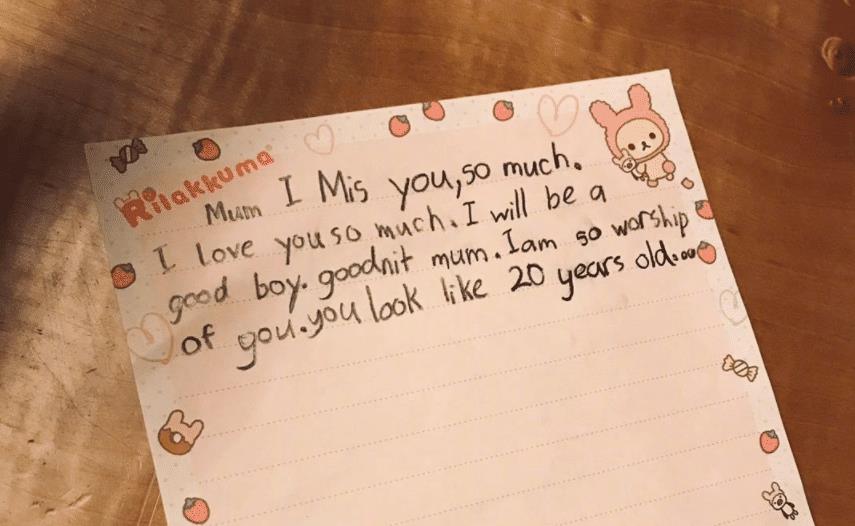 Rilakkuma
Mum I Mis you,so much.
I love you so much. I will be a
good boy. goodnit mum. I am so worship
of you. you look like 20 years old....